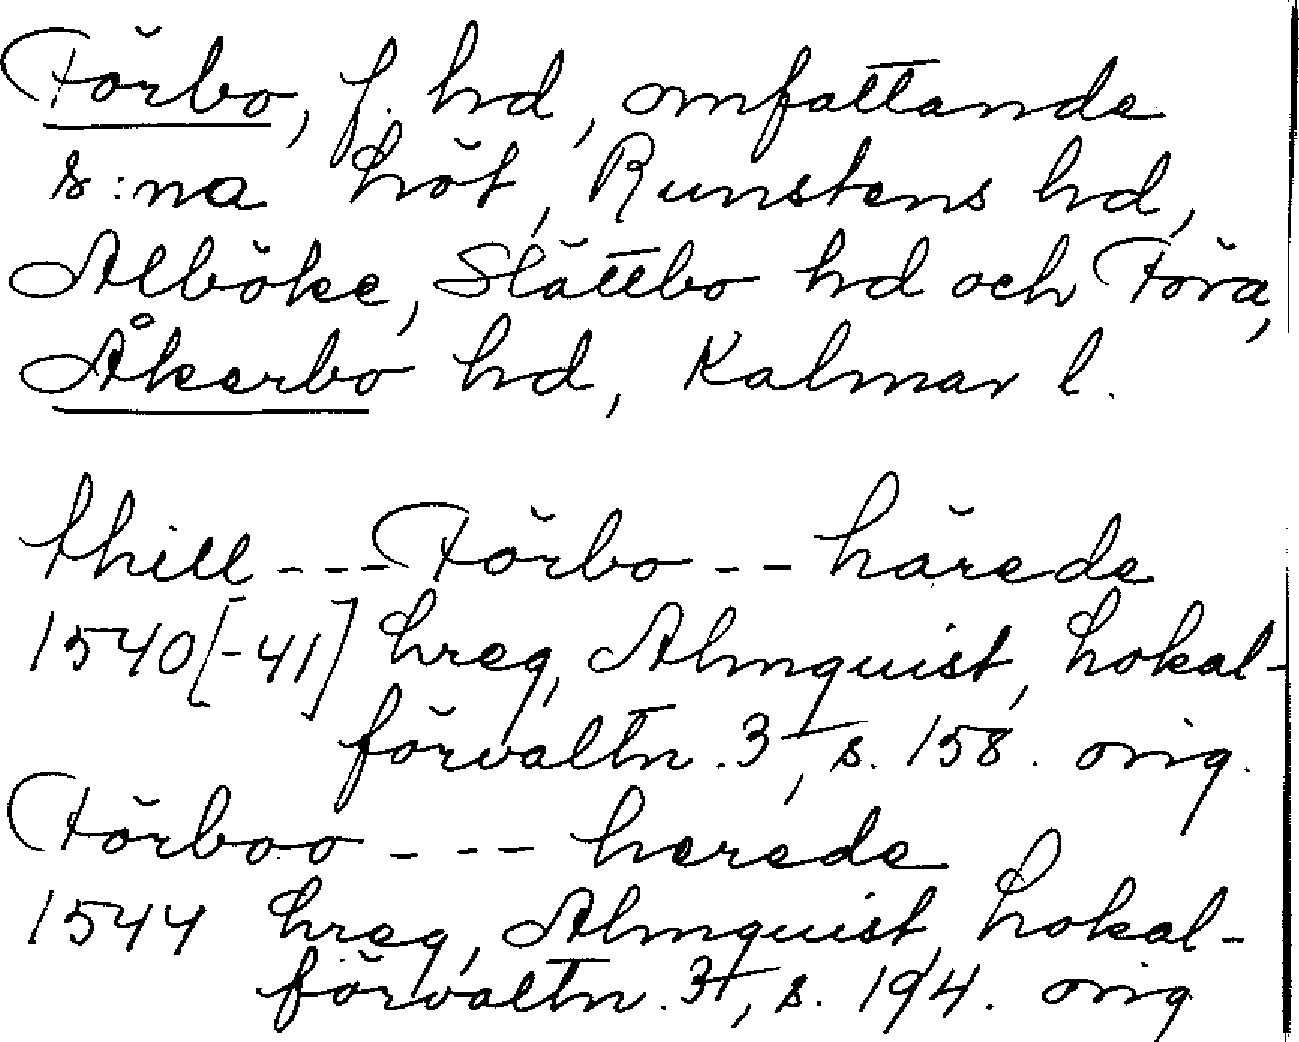 Förbo, f. hd, omfattande
s:na Löt, Runstens hd,
Alböke, Slättbo hd och Föra,
Åkerbo hd, Kalmar l.
thill --- Förbo -- härede
1540[-41] Lreg, Almquist, Lokal-
förvaltn. 3, s. 158. orig.
Förboo --- herede
1544 Lreg, Almquist, Lokal-
förvaltn. 3, s. 194. orig